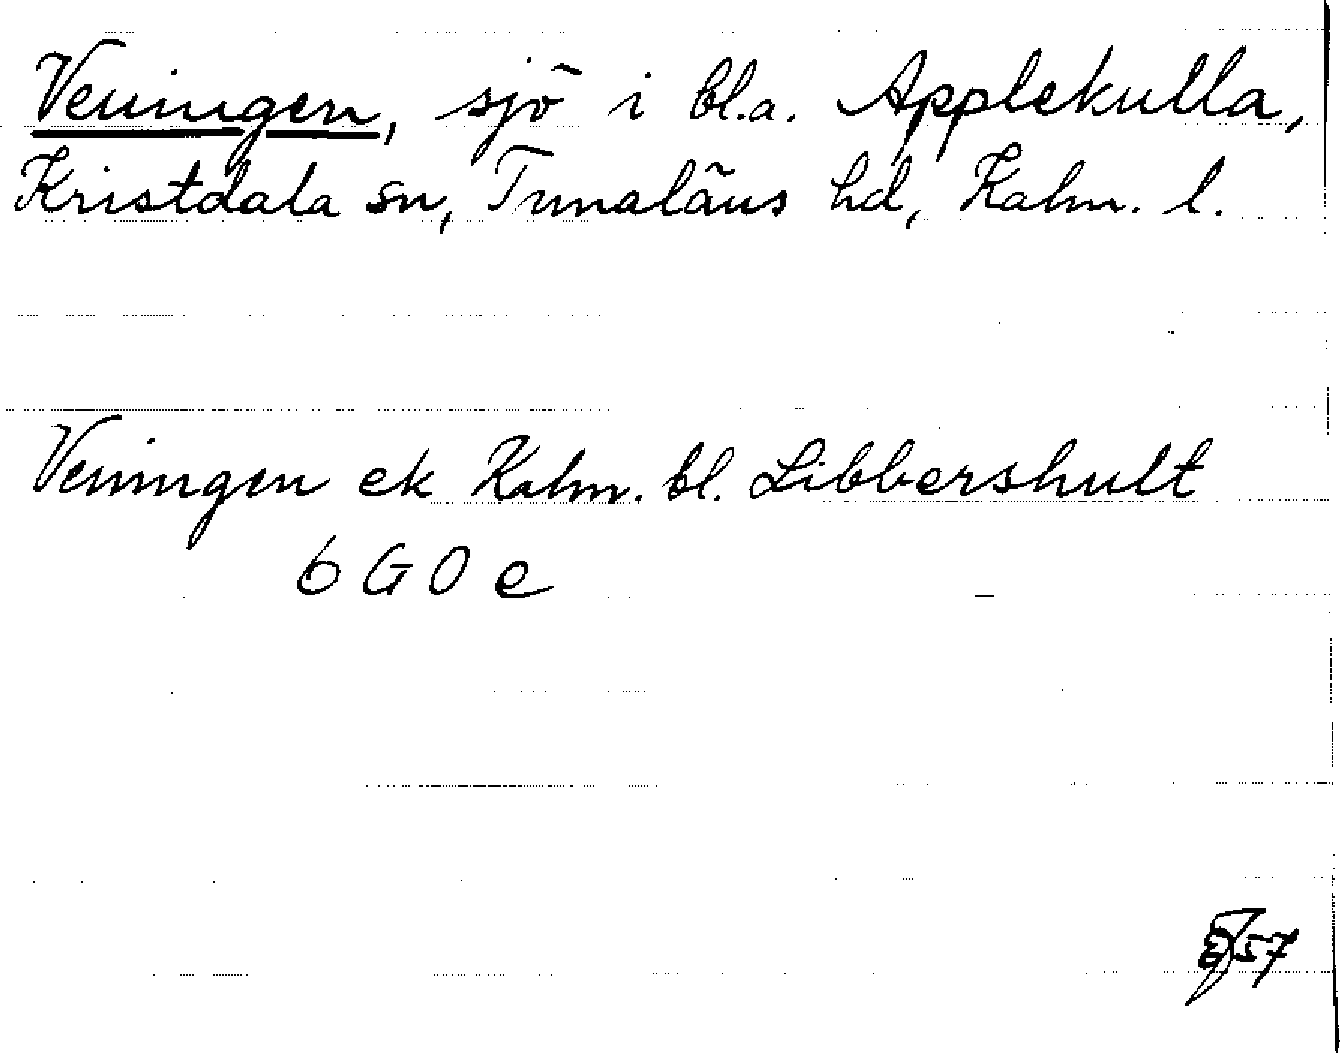 Venningen, sjö i bl.a. Applekulla,
Kristdala sn, Tunaläns hd, Kalm. l.
Venningen ek Kalm. bl. Libbershult
6 G 0 e
57